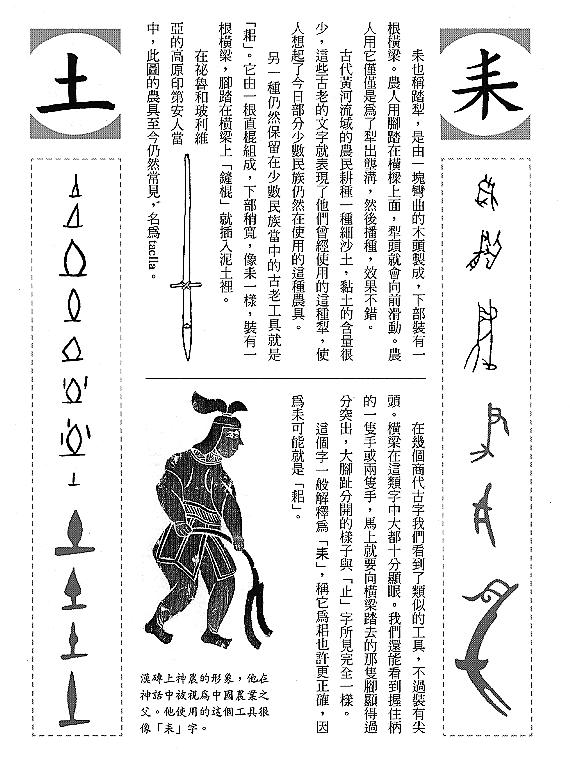 耒
耒也稱踏犁，是由一塊彎曲的木頭製成，下部裝有一
根橫梁。農人用腳踏在橫樑上面，犁頭就會向前滑動。農
人用它僅僅是爲了犁出壟溝，然後播種，效果不錯。
古代黃河流域的農民耕種一種細沙土，黏土的含量很
少，這些古老的文字就表現了他們曾經使用的這種犁，使
人想起了今日部分少數民族仍然在使用的這種農具。
另一種仍然保留在少數民族當中的古老工具就是
「耜」。它由一根直棍組成，下部稍寬，像耒一樣，裝有一
根橫梁，腳踏在橫梁上「鏟棍」就插入泥土裡。
在祕魯和玻利維
亞的高原印第安人當
中，此圖的農具至今仍然常見，名爲taclla。
在幾個商代古字我們看到了類似的工具，不過裝有尖
頭。橫梁在這類字中大都十分顯眼。我們還能看到握住柄
的一隻手或兩隻手，馬上就要向橫梁踏去的那隻腳顯得過
分突出，大腳趾分開的樣子與「止」字所見完全一樣。
這個字一般解釋爲「耒」，稱它爲耜也許更正確，因
爲耒可能就是「耜」。
漢碑上神農的形象，他在
神話中被視爲中國農業之
父。他使用的這個工具很
像「耒」字。
土